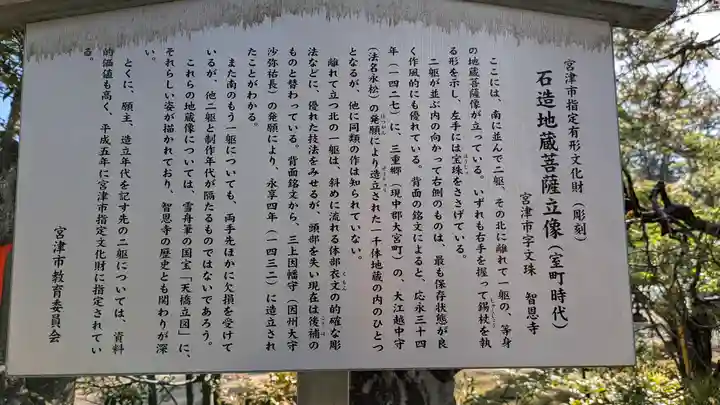 宮津市指定有形文化財（彫刻）
石造地蔵菩薩立像（室町時代）
宮津市字文珠　智恩寺
ここには、南に並んで二躯、その北に離れて一躯の、等身
の地蔵菩薩像が立っている。いずれも右手を握って錫杖を執
る形を示し、左手には宝珠をささげている。
二躯が並ぶ内の向かって右側のものは、最も保存状態が良
く作風的にも優れている。背面の銘文によると、応永三十四
年（一四二七）に、三重郷（現中郡大宮町）の、大江越中守
（法名永松）の発願により造立された一千体地蔵の内のひとつ
となるが、他に同類の作は知られていない。
離れて立つ北の一躯は、斜めに流れる体部衣文の的確な彫
法などに、優れた技法をみせるが、頭部を失い現在は後補の
ものと替わっている。背面銘文から、三上因幡守（因州大守
沙弥祐長）の発願により、永享四年（一四三二）に造立され
たことがわかる。
また南のもう一躯についても、両手先ほかに欠損を受けて
いるが、他二躯と制作年代が隔たるものではないであろう。
これらの地蔵像については、雪舟筆の国宝「天橋立図」に、
それらしい姿が描かれており、智恩寺の歴史とも関わりが深
い。
とくに、願主、造立年代を記す先の二躯については、資料
的価値も高く、平成五年に宮津市指定文化財に指定されてい
る。
宮津市教育委員会